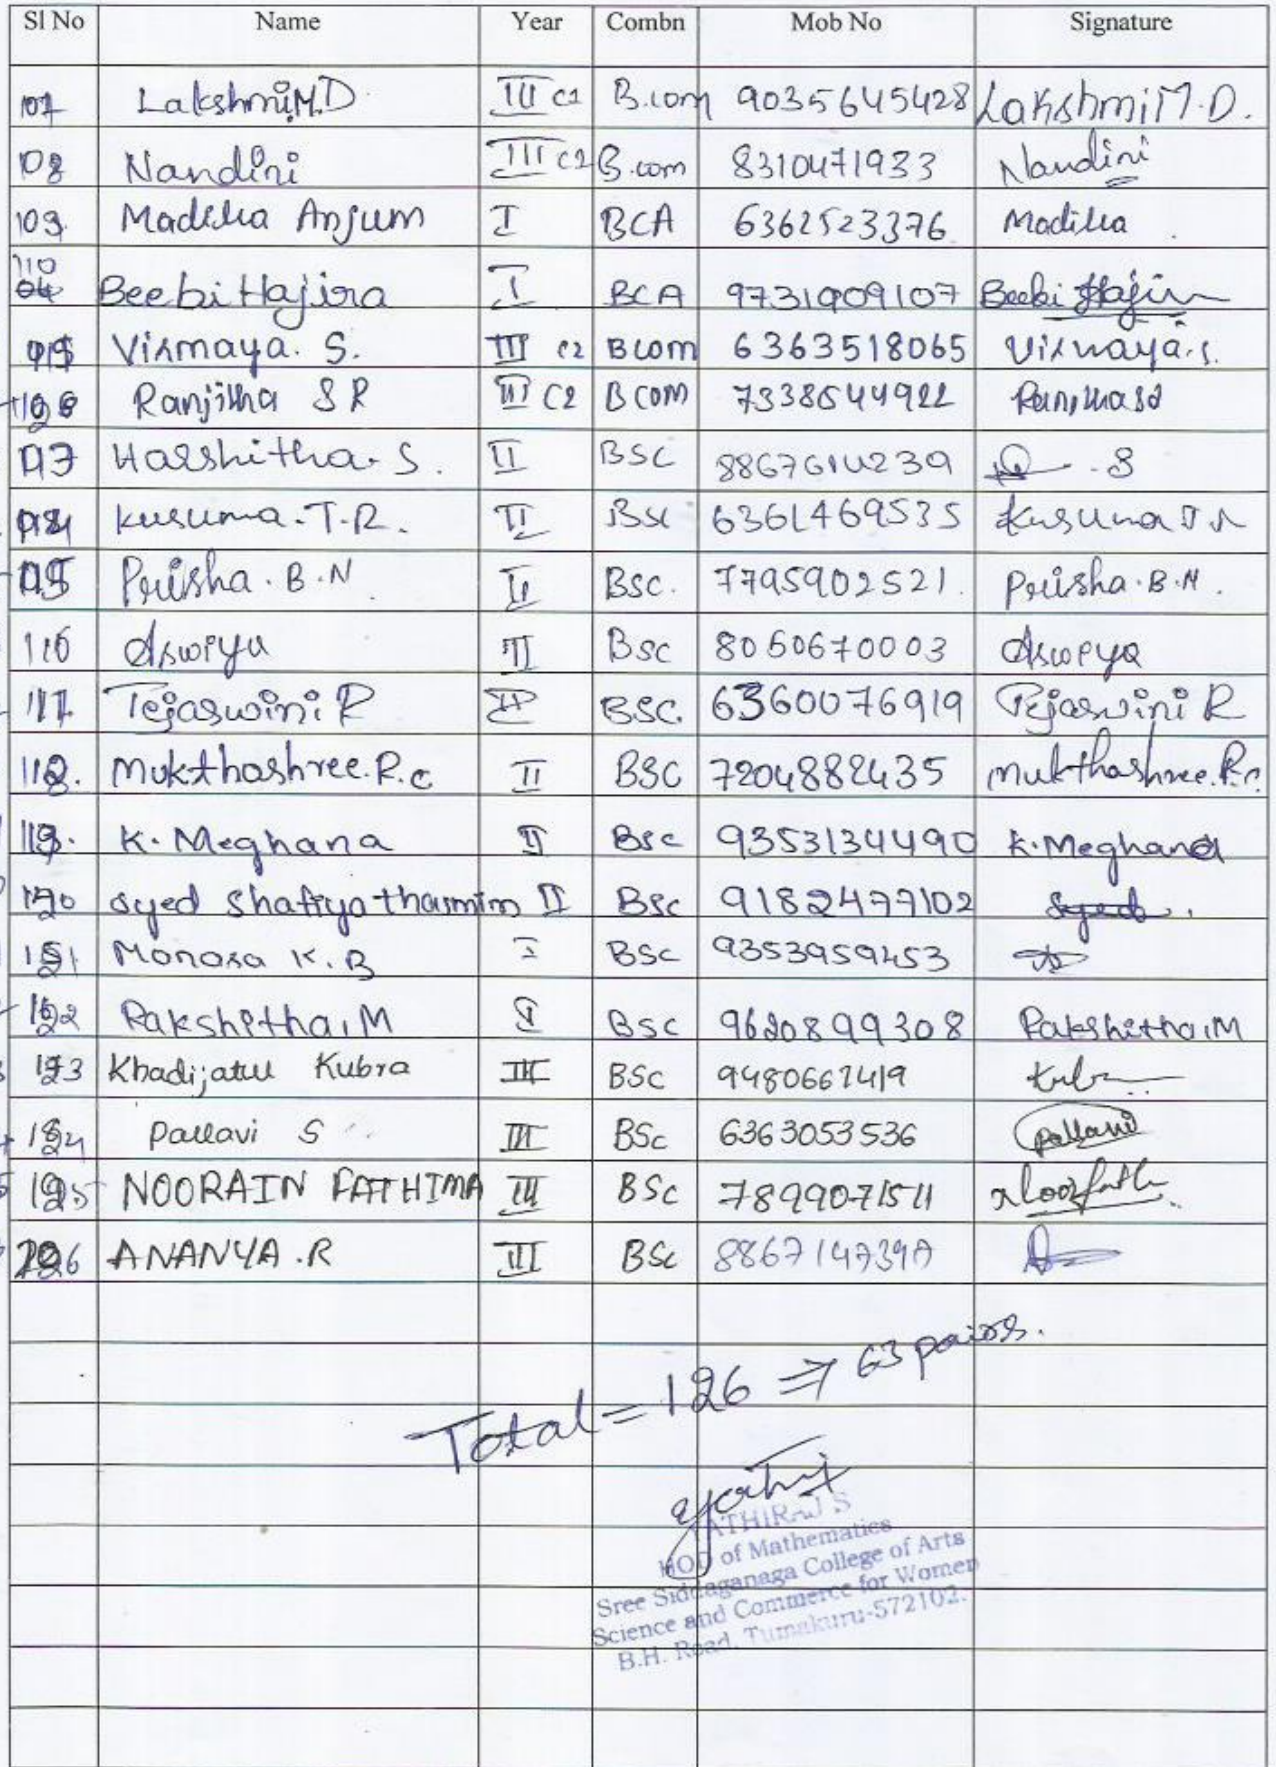 Sl No Name Year Combn Mob No Signature
107 Lakshmi M.D III C1 B.com 9035645428 Lakshmi M.D.
108 Nandini III C2 B.com 8310471933 Nandini
109 Madiha Anjum I BCA 6362523376 Madiha
110 Beebi Hajira I BCA 9731909107 Beebi Hajira
Vismaya. S. III C2 Bcom 6363518065 Vismaya.s.
Ranjitha S R III C2 Bcom 7338544922
Harshitha. S. II BSC 8867614239 S
Kusuma.T.R. II Bsc 6361469535 Kusuma T R
115 Prisha.B.N II BSC. 7795902521. Prisha.B.N.
116 Aswiya II BSC 8050670003 Aswiya
117 Tejaswini R II BSC. 6360076919 Tejaswini R
118. Mukthashree.R.C II BSC 7204882435 Mukthashree.R.C
119. K. Meghana II Bsc 9353134490 K.Meghana
120 Syed Shafiya thasmim II BSC 9182477102 Syed
121 Monasa K.B I BSC 9353959453
122 Rakshitha.M I BSC 9620899308 Rakshitha.M
123 Khadijatul Kubra III BSC 9480667419
124 Pallavi S III BSc 6363053536 Pallavi
125 NOORAIN FATHIMA III BSc 7899071511 Noorfath
126 ANANYA.R III BSc
Total = 126 ⇒ 63 pairs.
ATHIRAJ S
HOD of Mathematics
Sree Siddaganaga College of Arts
Science and Commerce for Women
B.H. Road, Tumakuru-572102.